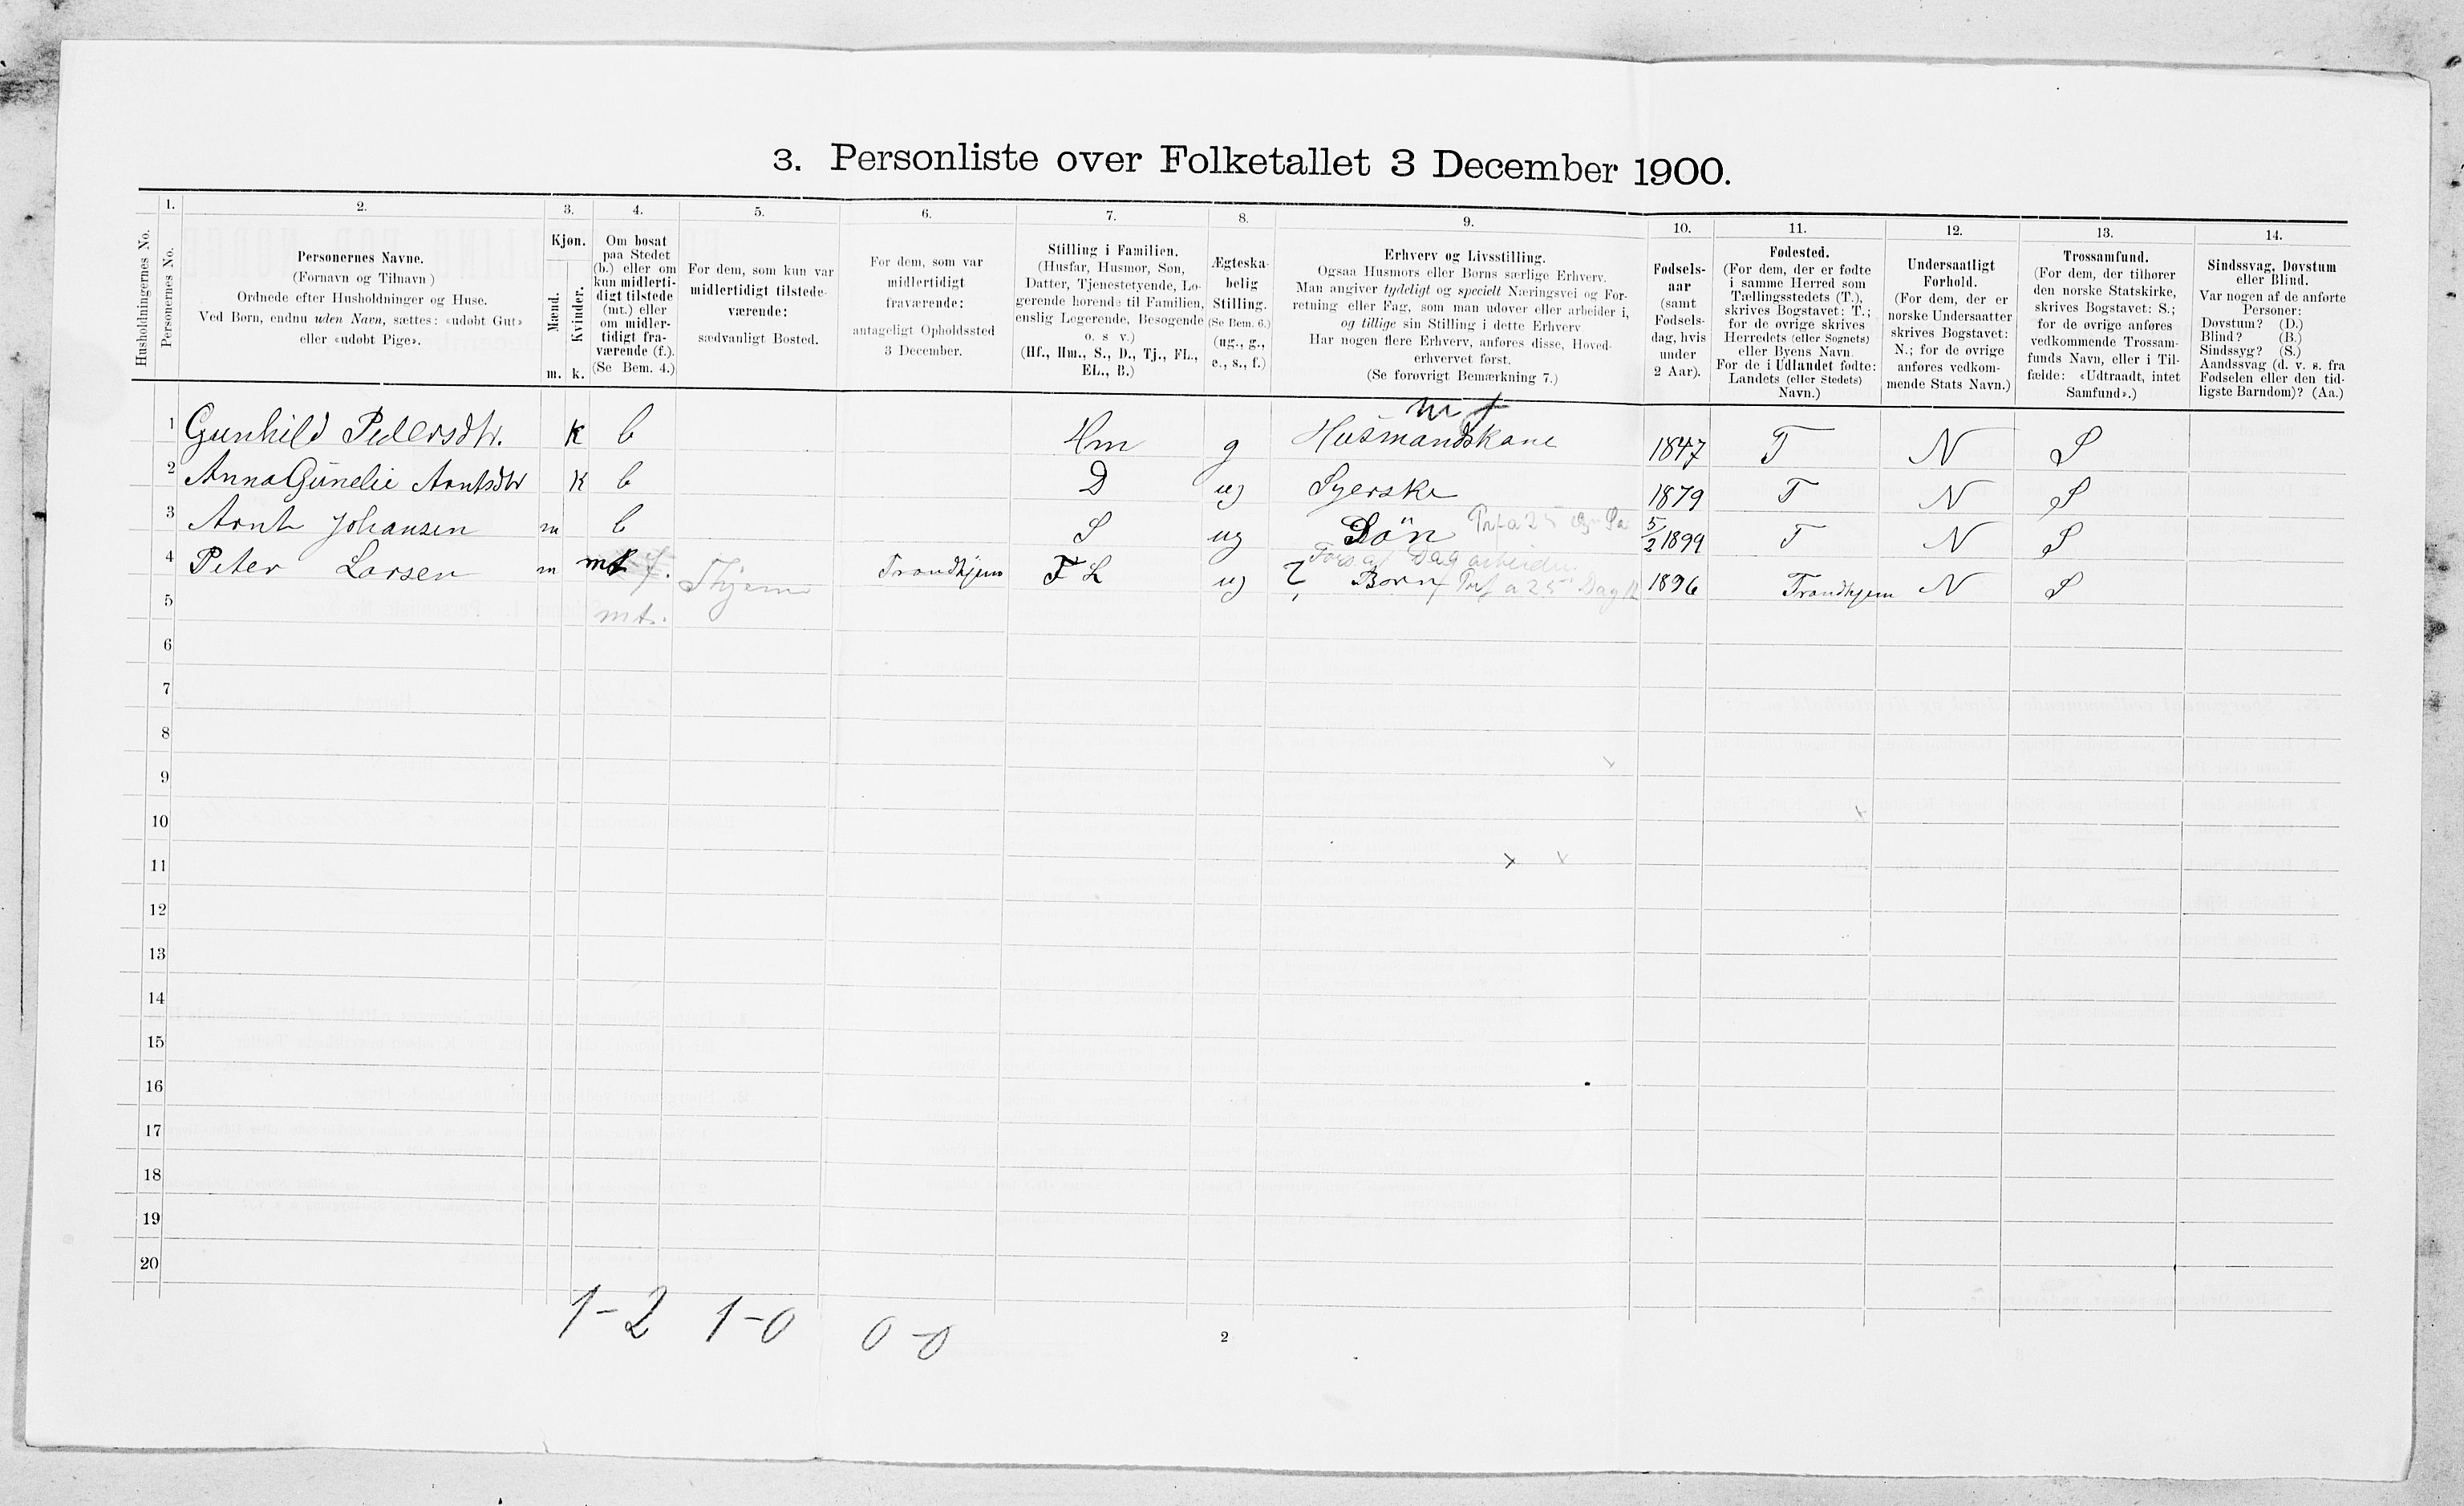 3. Personliste over Folketallet 3 December 1900.
1. 2. 3. 4. 5. 6. 7. 8. 9. 10. 11. 12. 13. 14.
Husholdningernes No.
Personernes No.
Personernes Navne.
(Fornavn og Tilnavn)
Ordnede efter Husholdninger og Huse.
Ved Børn, endnu uden Navn, sættes: «udøbt Gut»
eller «udøbt Pige».
Kjøn.
Mænd.
Kvinder.
m. k.
Om bosat
paa Stedet
(b.) eller om
kun midlerti-
digt tilstede
(mt.) eller
om midler-
tidigt fra-
værende (f.).
(Se Bem. 4.)
For dem, som kun var
midlertidigt tilstede-
værende:
sædvanligt Bosted.
For dem, som var
midlertidigt
fraværende:
antageligt Opholdssted
3 December.
Stilling i Familien.
(Husfar, Husmor, Søn,
Datter, Tjenestetyende, Lo-
gerende hørende til Familien,
enslig Logerende, Besøgende
o. s. v.)
(Hf., Hm., S., D., Tj., FL.,
EL., B.)
Ægteska-
belig
Stilling.
(Se Bem. 6.)
(ug., g.,
e., s., f.)
Erhverv og Livsstilling.
Ogsaa Husmors eller Børns særlige Erhverv.
Man angiver tydeligt og specielt Næringsvei og For-
retning eller Fag, som man udøver eller arbeider i,
og tillige sin Stilling i dette Erhverv.
Har nogen flere Erhverv, anføres disse, Hoved-
erhvervet først.
(Se forøvrigt Bemærkning 7.)
Fødsels-
aar
(samt
Fødsels-
dag, hvis
under
2 Aar).
Fødested.
(For dem, der er fødte
i samme Herred som
Tællingsstedets (T.),
skrives Bogstavet: T.;
for de øvrige skrives
Herredets (eller Sognets)
eller Byens Navn.
For de i Udlandet fødte:
Landets (eller Stedets)
Navn.)
Undersaatligt
Forhold.
(For dem, der er
norske Undersaatter
skrives Bogstavet:
N.; for de øvrige
anføres vedkom-
mende Stats Navn.)
Trossamfund.
(For dem, der tilhører
den norske Statskirke,
skrives Bogstavet: S.;
for de øvrige anføres
vedkommende Trossam-
funds Navn, eller i Til-
fælde: «Udtraadt, intet
Samfund».)
Sindssvag, Døvstum
eller Blind.
Var nogen af de anførte
Personer:
Døvstum? (D.)
Blind? (B.)
Sindssyg? (S.)
Aandssvag (d. v. s. fra
Fødselen eller den tid-
ligste Barndom)? (Aa.)
1 Gunhild Pedersdtr. k b Hm g Husmandskone 1847 T N S
2 Anna Gunelie Arntsdtr k b D ug Syerske 1879 T N S
3 Arnt Johansen m b S ug Søn 5/2 1899 T N S
Fors af Dagarbeider
4 Peter Larsen m mt Thjem Trondhjem FL ug Born 1896 Trondhjem N S
5 mt.
6
7
8
9
10
11
12
13
14
15
16
17
18
19
20
1-2 1-0 0-0
2